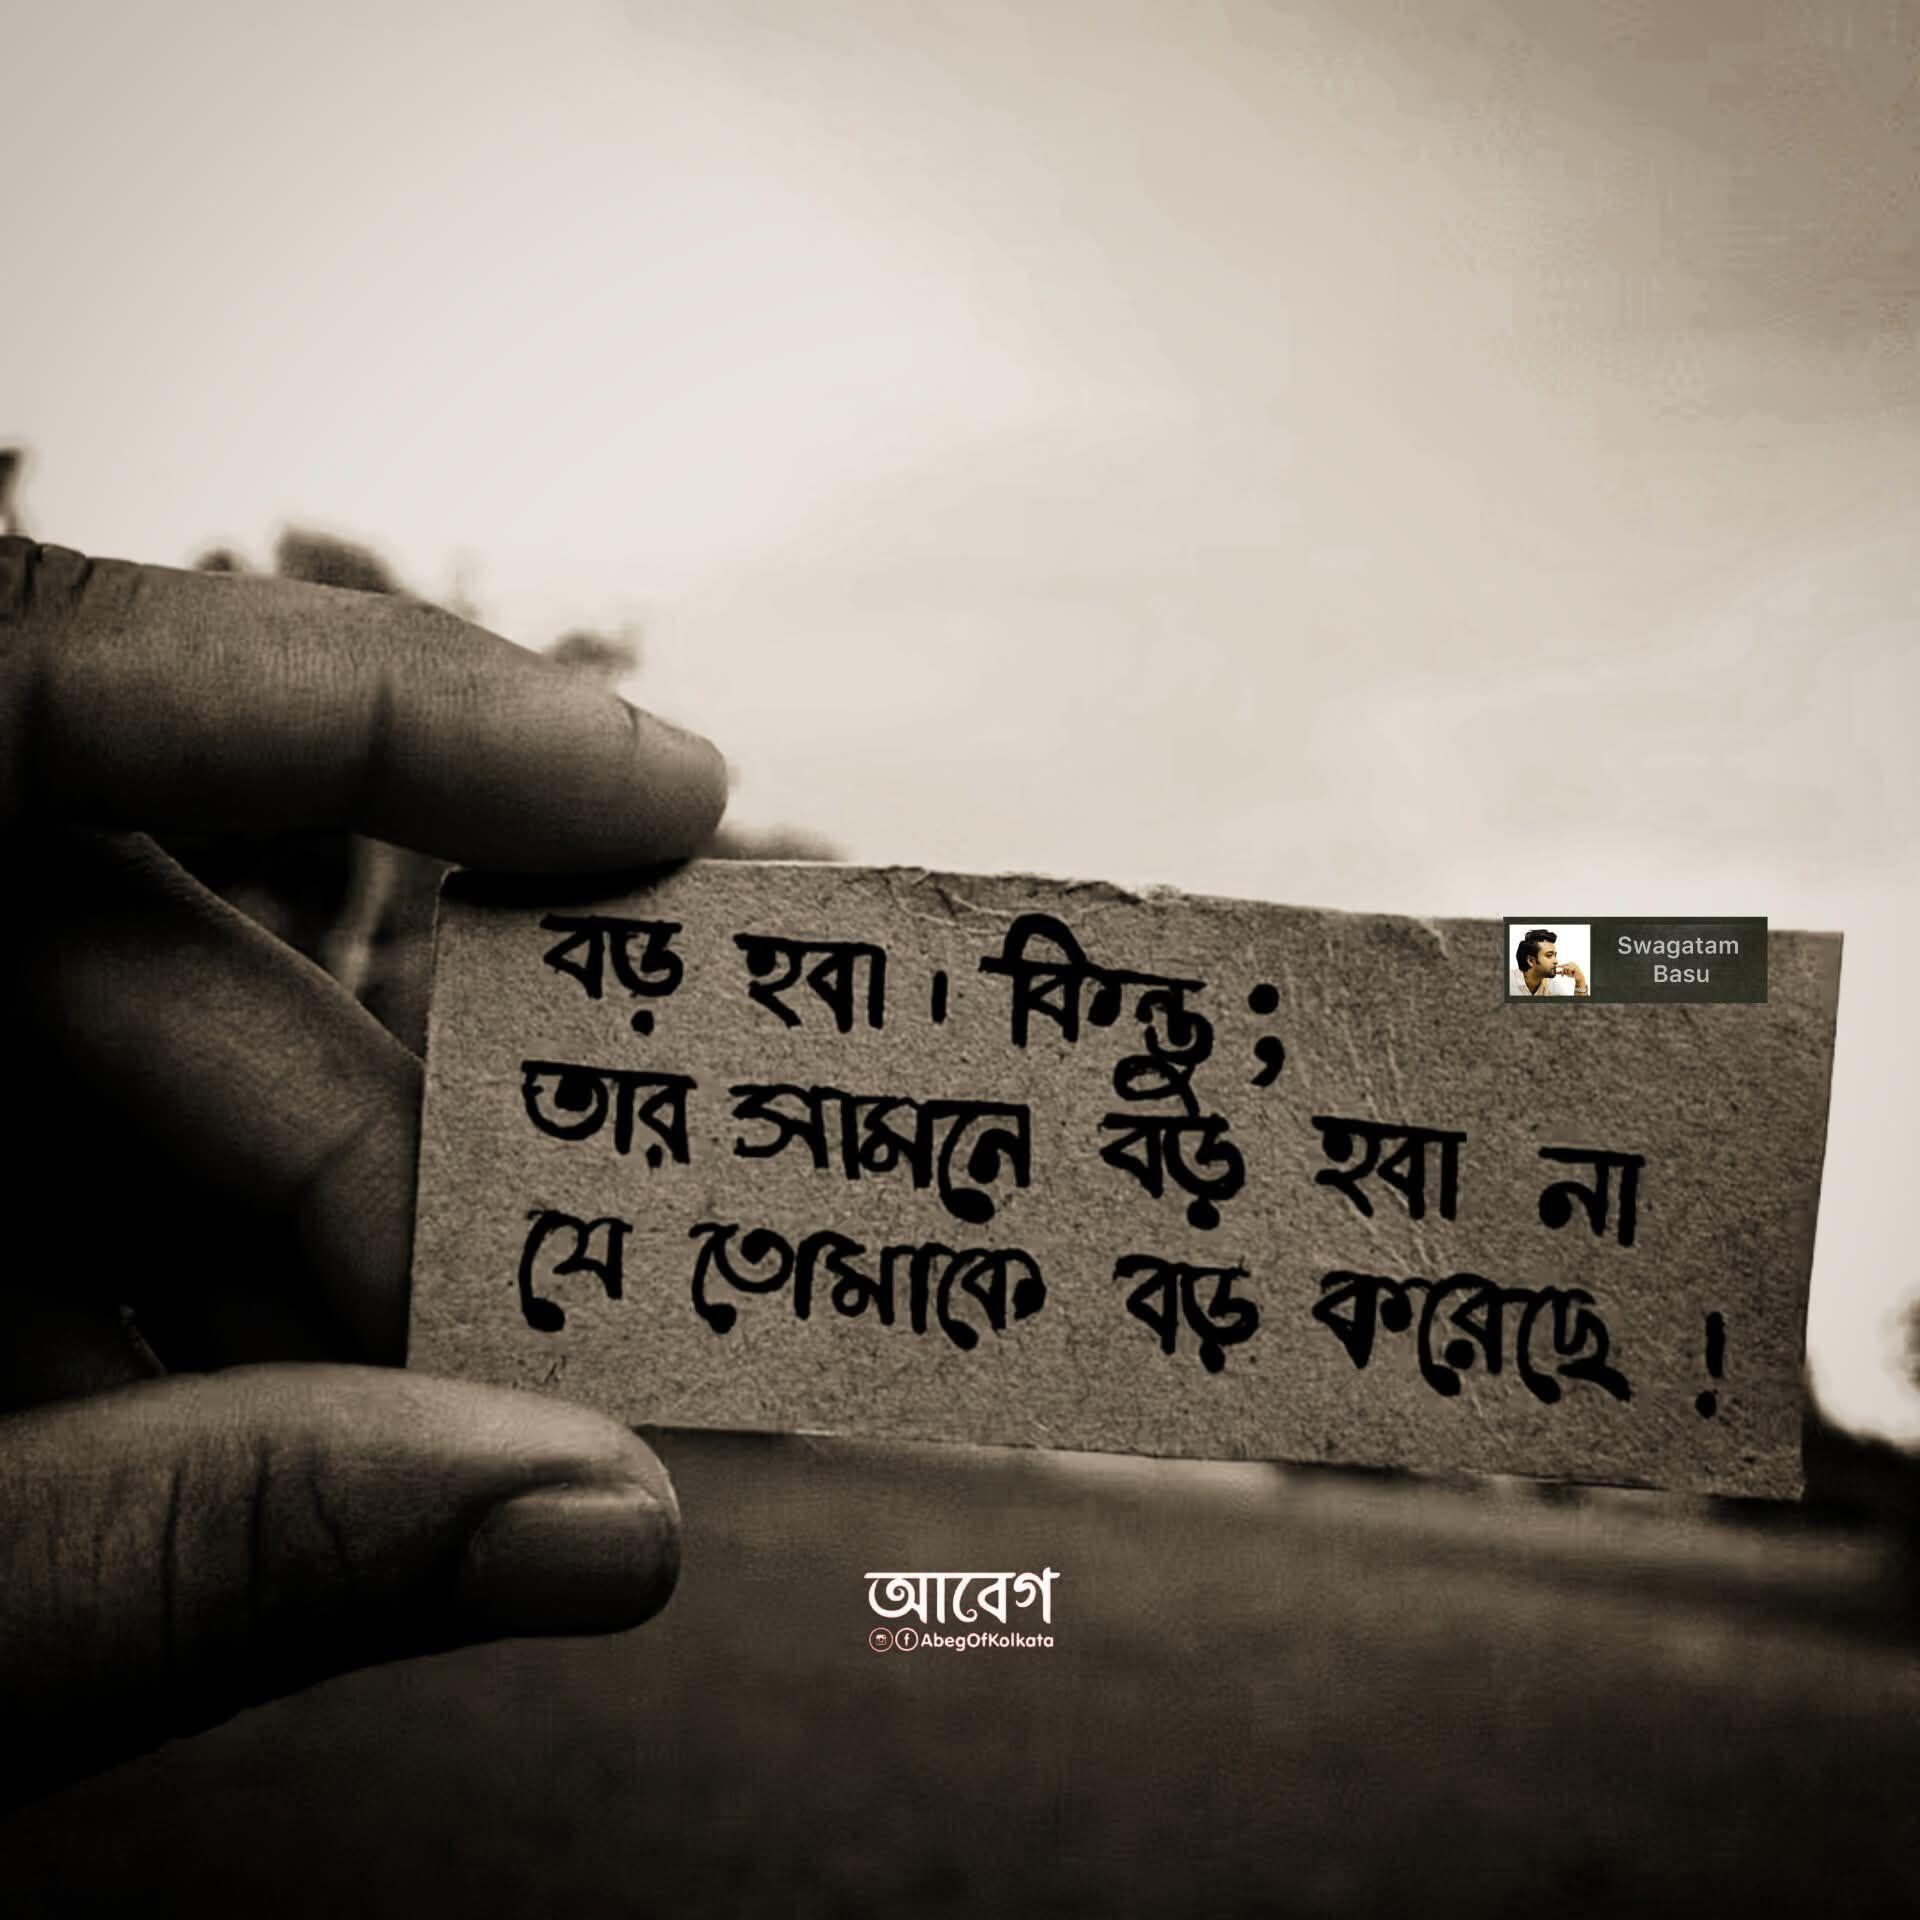 বড় হবা। কিন্তু;
তার সামনে বড় হবা না
যে তোমাকে বড় করেছে !
Swagatam
Basu
আবেগ
AbegOfKolkata